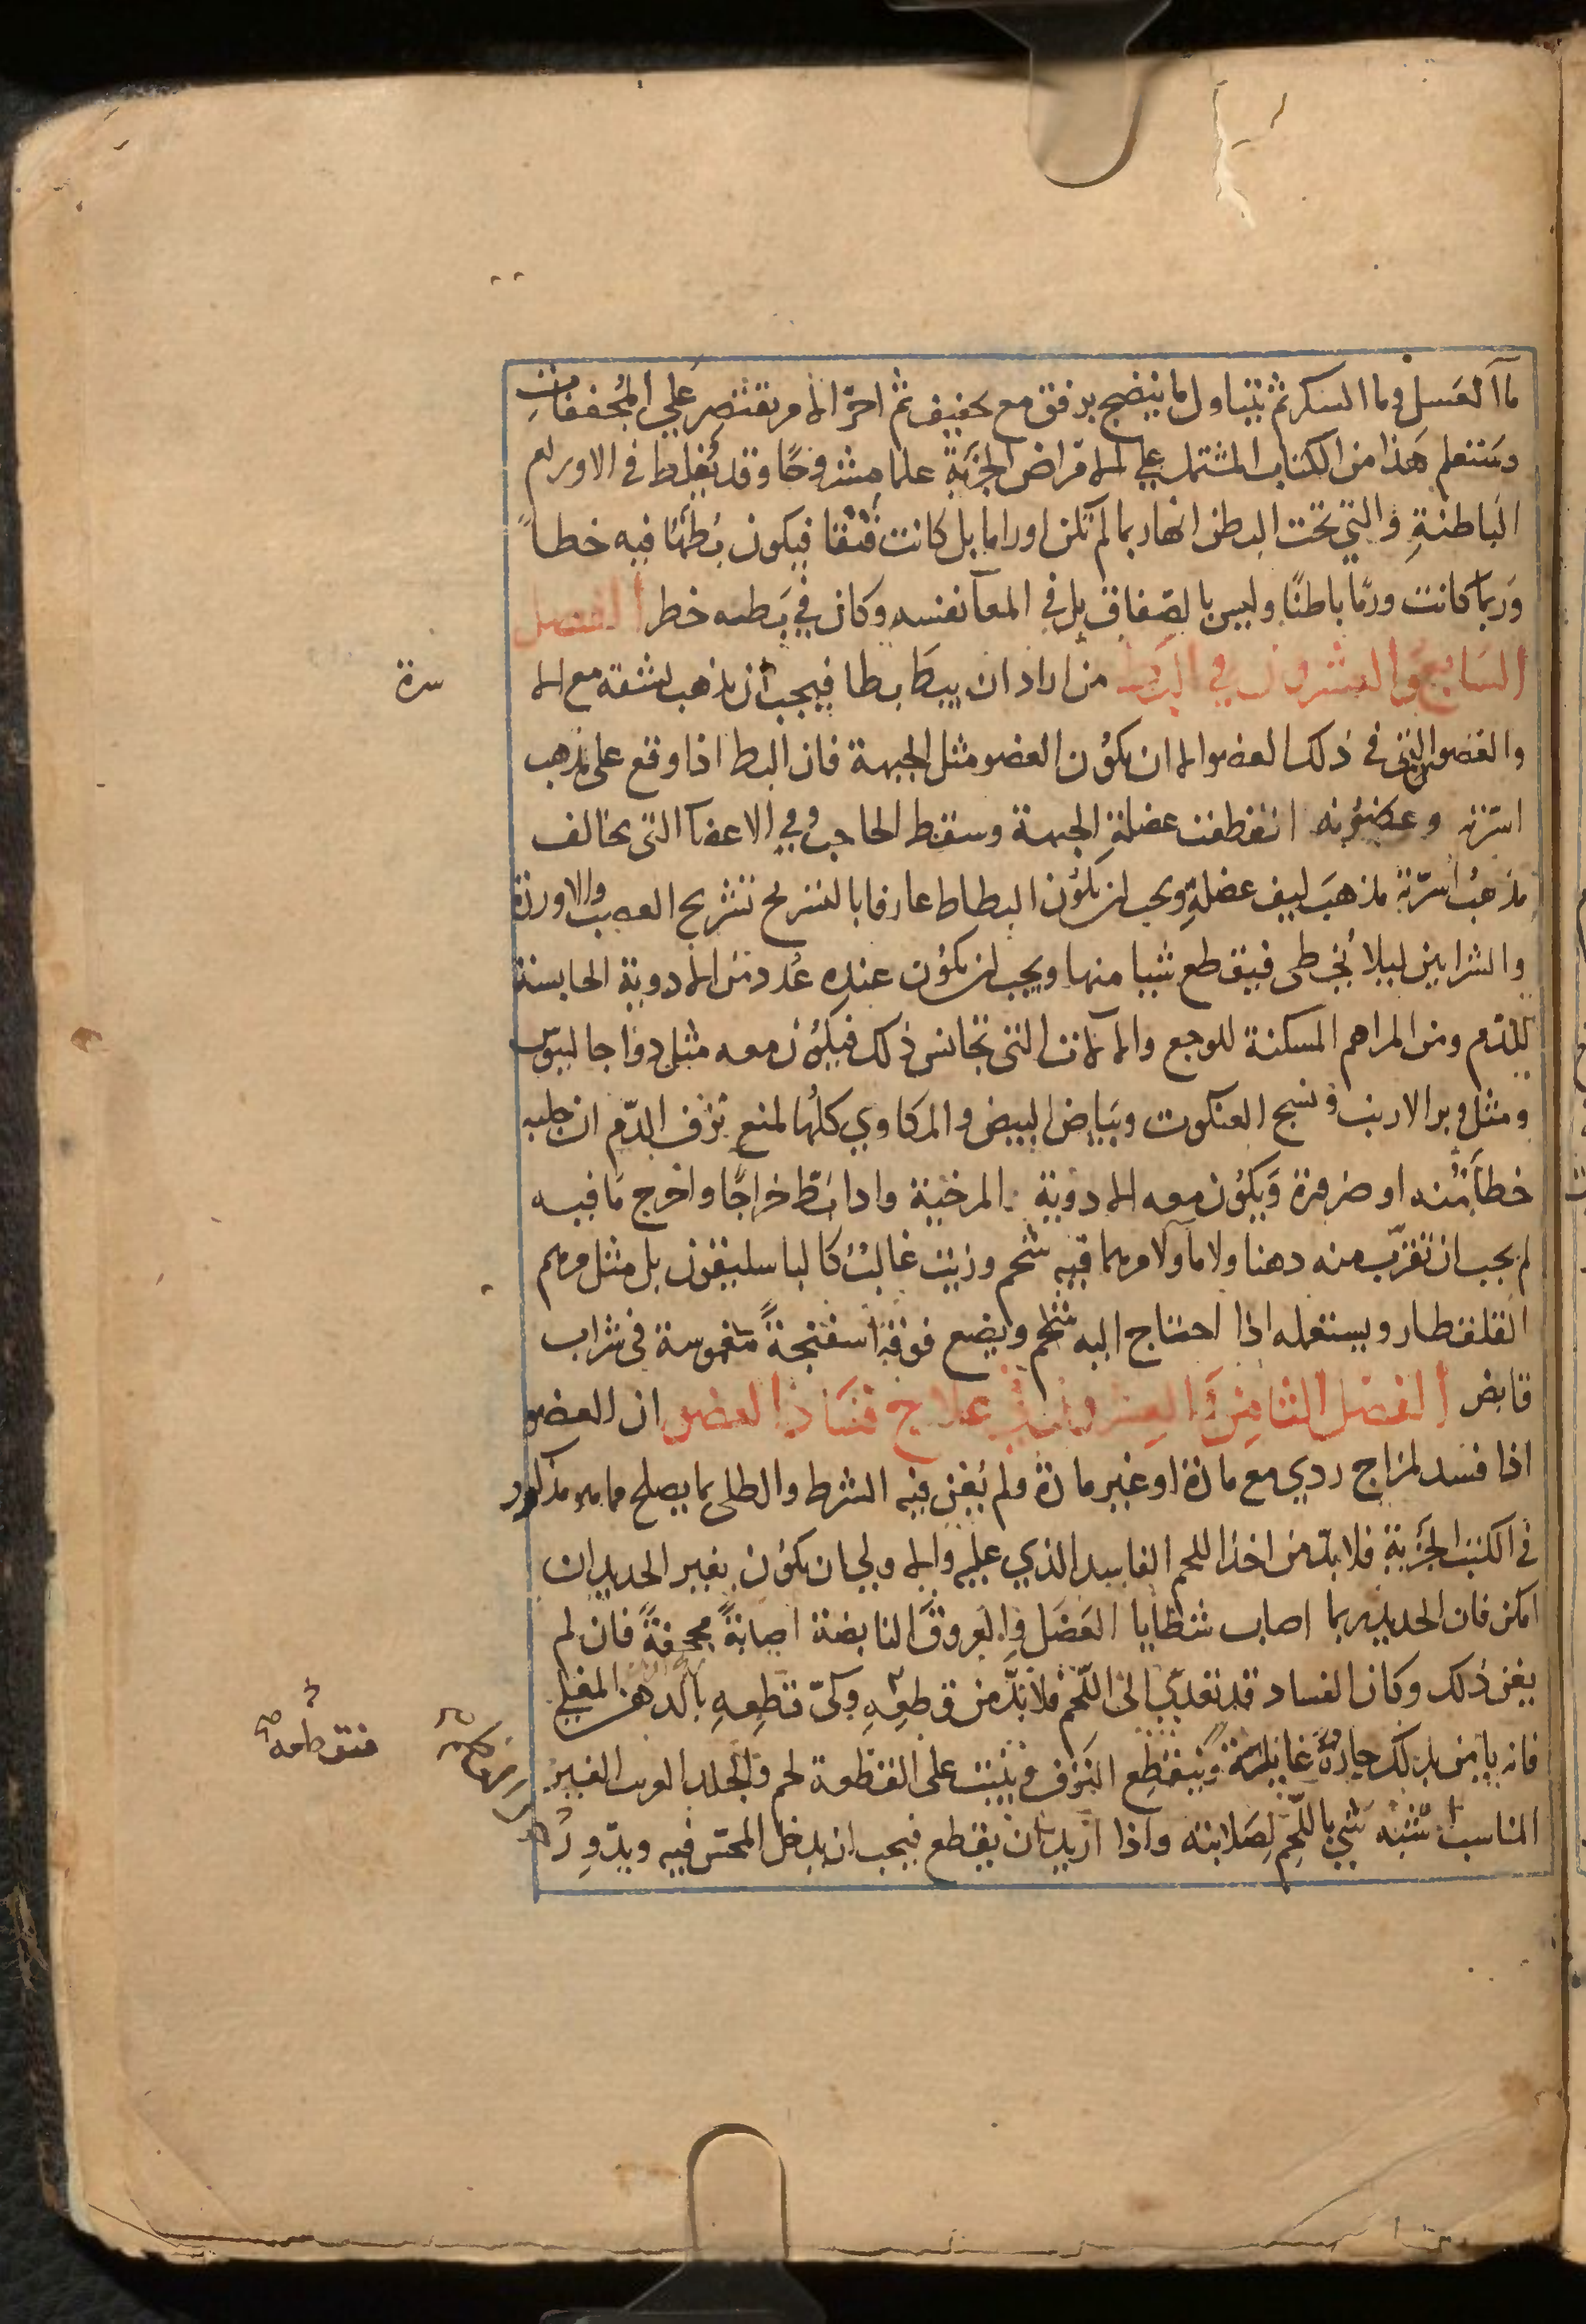 مآ العَسل وما السكر ثم يتناول ما ينضج برفق مع تحفيف ثم اخرّ الامر يقتصر علي المُجففاتِ
وستعلم هَذا من الكتاب المشتمل علي الامراض الجزيَةِ علما مشروحًا وقد يُغلط في الاورام
البَاطنةِ والتي تحت البطن انها ربما لم تكن اوراما بل كانت فتقا فيكون بُطّها فيه خطأً
وَربما كانت ورمًا باطنًا وليس بالصّفاق بل في المعآ نفسه وكان في بَطه خطر الفصل
السَابعُ والعشرون في البَط من اراد ان يبط بطا فيجب ان يذهب بشقه مع الا
سرة
والغضون التي في ذلك العضو الا ان يكوُن العضو مثل الجبهة فان البط اذا وقع على مذهب
اسرّته وغضوُنه انقطعت عضلةِ الجبهة وسقط الحاجب وفي الاعضآ التي يخالف
مذهبُ اسرّته مذهبَ ليف عضلةٍ ويجب ان يكوُن البطاط عارفا بالتشريح تشريح العصب والاوردة
والشرايين ليلا يُخطى فيقطع شيا منها ويجب ان يكوُن عنده عُدد من الادوية الحابسة
للدّم ومن المراهم المسكنة للوجع والالات التي تجانس ذلك فيكوُن معه مثل دوا جالينوس
ومثل وبر الارنب ونسج العنكبوت وبَياض البيض والمكاوي كلهُا لمنع نزف الدّم ان جلبه
خطأ مّنه او ضرورة وَيكوُن معه الادوية المرخية واذا بَطّ خراجًا واخرج مَا فيه
لم يجب ان تقرّب منه دهنا ولا مآ ولا مرهما فيه شحم وزيت غالبُ كالباسليقون بل مثل مرهم
القلقطار ويستعمله اذا احتاج اليه ثم ويضع فوقه اسفنجةً مغموسة في شراب
قابض الفصل الثامِنُ والعشرون في علاج فسَاد العضو ان العضو
اذا فسد لمزاج ردي مع مادة او غير مادة ولم يُغن فيه الشرط والطلى بما يصلح مما هو مذكور
في الكتب الجُزية فلا بدّ من اخذ اللحم الفاسد الذي عليه والاولى ان يكوُن بغير الحديد ان
امكن فان الحديد ربما اصاب شظايا العَضَل والعروقَ النابضة اصابةً مجحفةً فان لم
يغن ذلك وكان الفساد قد تعدّي الى اللّحم فلا بدَّ من قطعِهِ وكيّ قطعِهِ بالدهن المغلي
فانه يامن بذلك حادثة غايلته وينقطِع النَزف وينبت على القطعة لحم والجلد الغريب الغير
المناسب اشبَه شي باللّحم لِصَلابته واذا اريد ان يقطع فيجب ان يدخل المحس فيه ويدّورُ